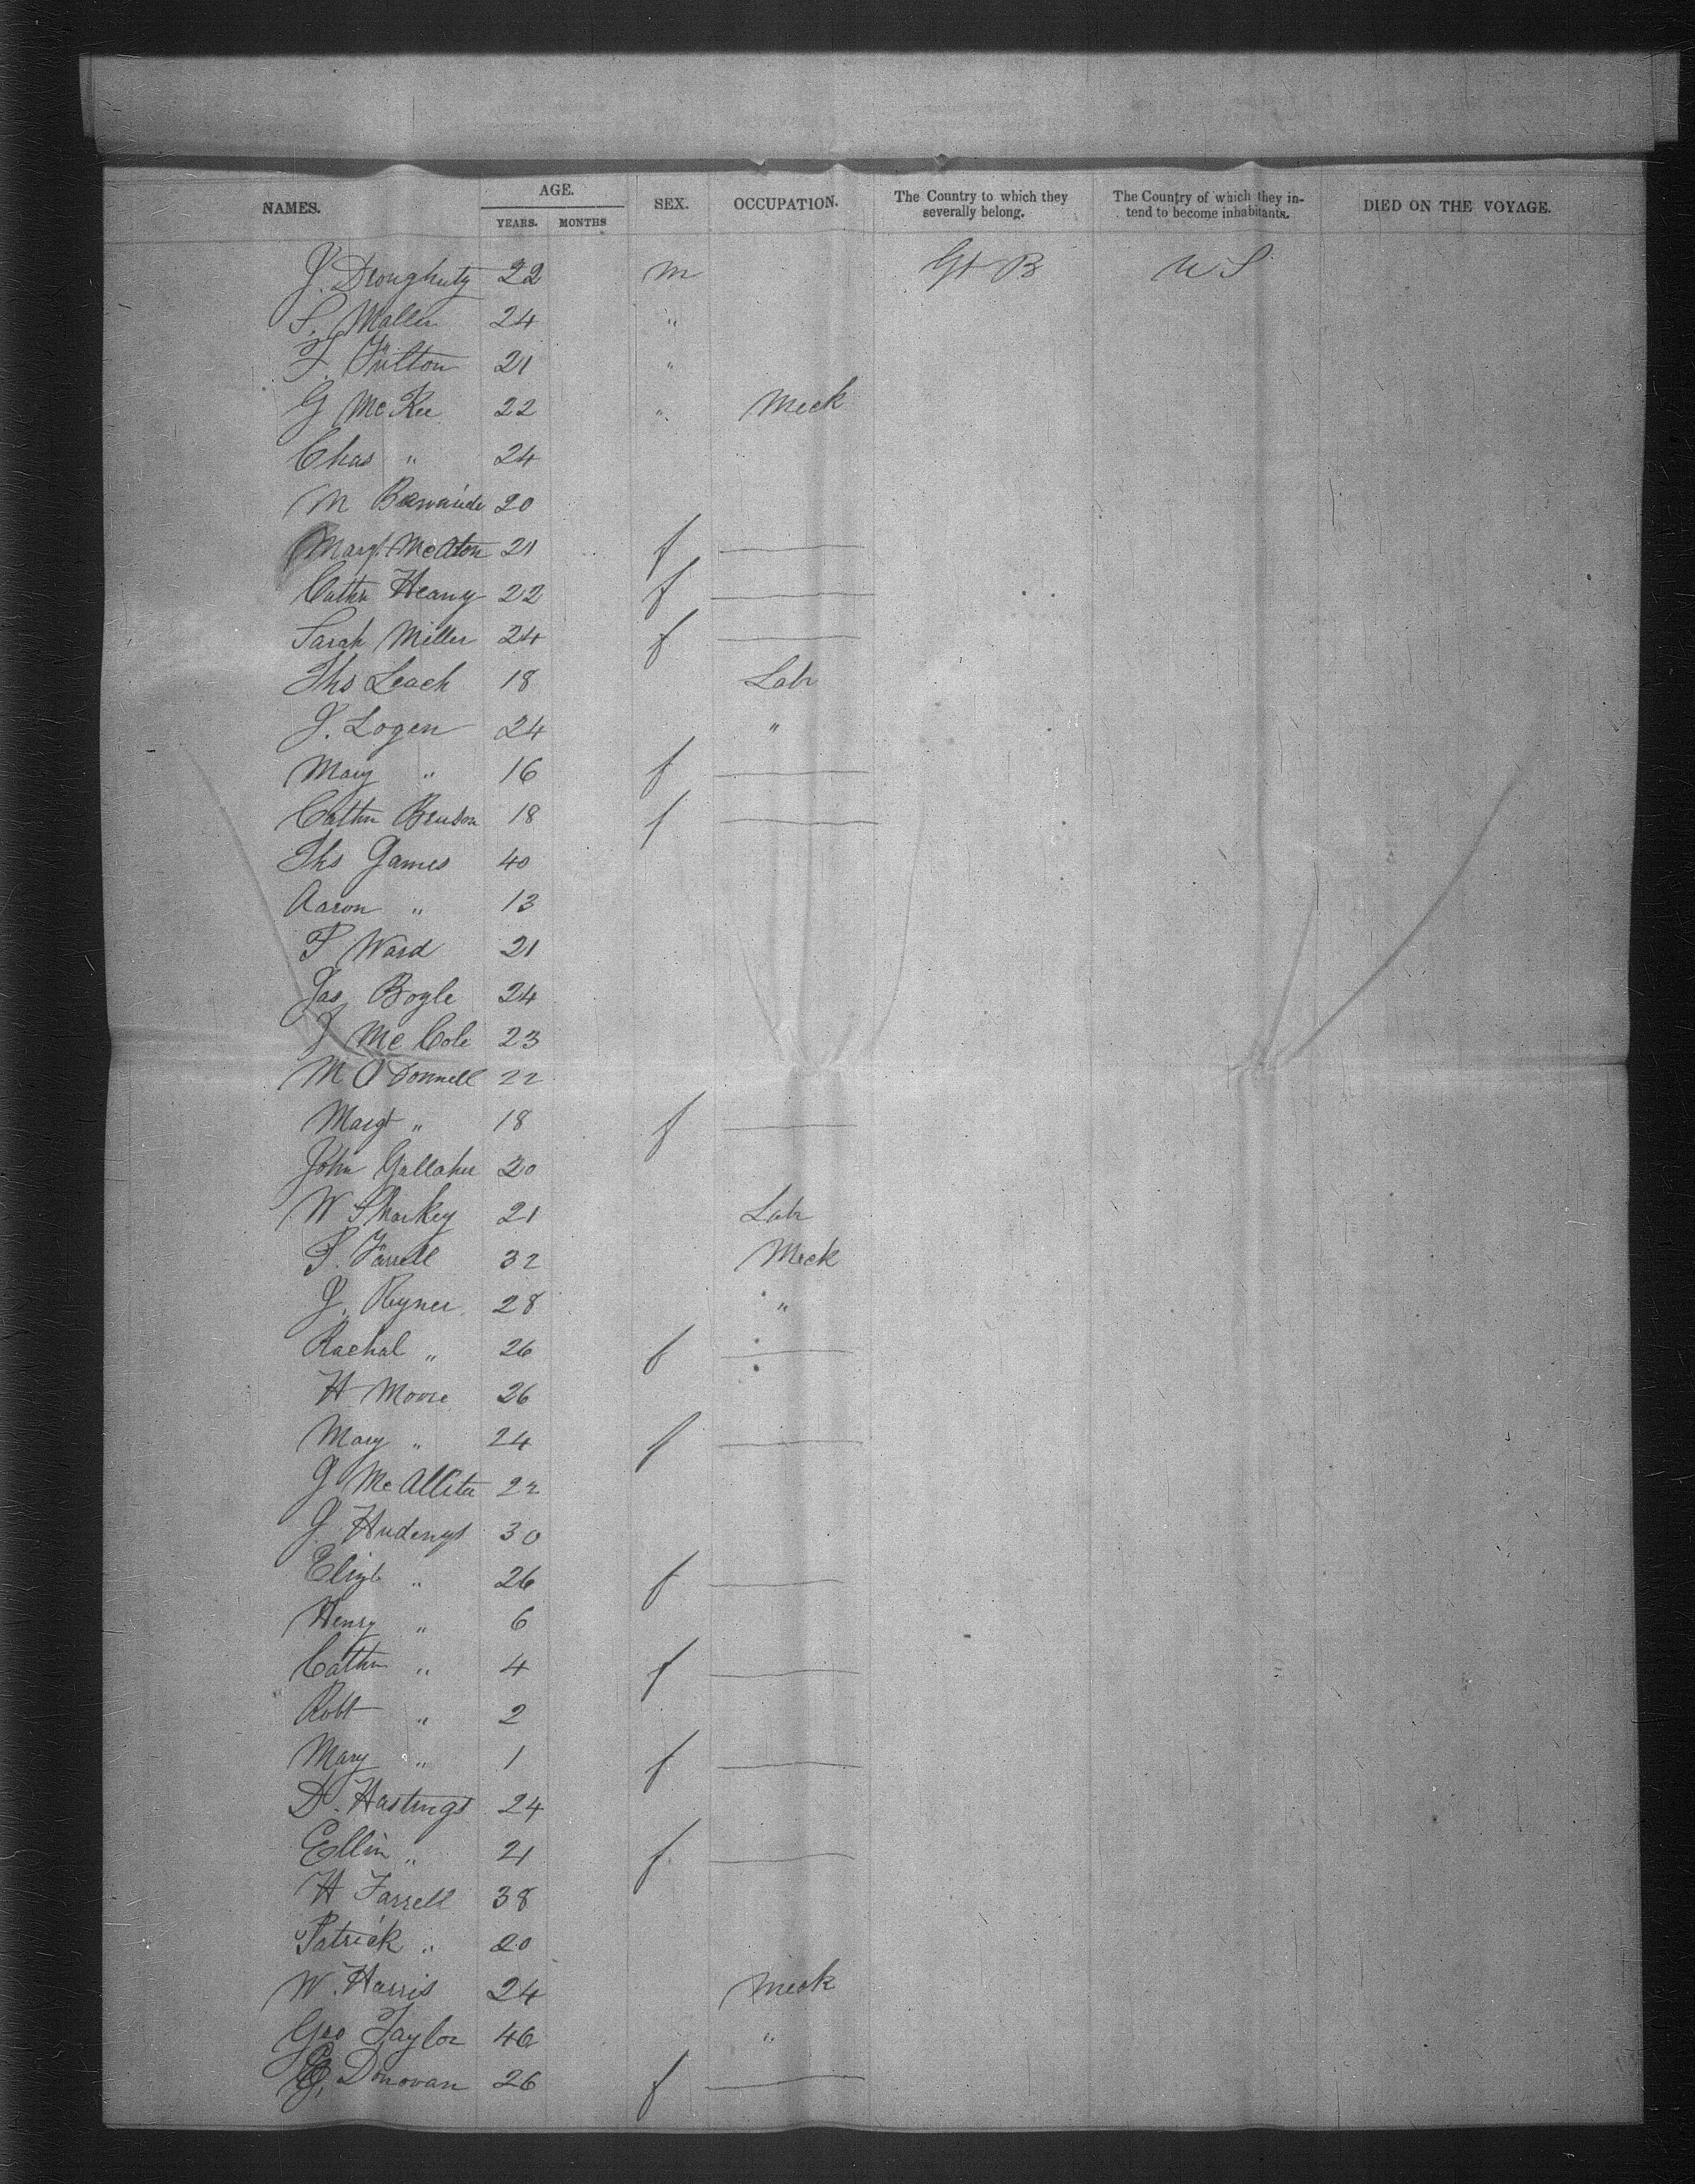 NAMES. AGE. SEX. OCCUPATION. The Country to which they severally belong. The Country of which they intend to become inhabitants. DIED ON THE VOYAGE.
YEARS. MONTHS
J. Droughuty 22 m Gt B U S
S. Mallin 24 "
F. Fulton 21 "
G McKee 22 " Meck
Chas " 24
M 20
Margt 21 f
Cathn Heany 22 f
Sarah Miller 24 f
Ths Leach 18 Labr
J. Logen 24 "
Mary " 16 f
Cathn Benson 18 f
Ths James 40
Aaron " 13
P Ward 21
Jas Bogle 24
J McCole 23
M O'Donnell 22
Margt " 18 f
John Gallaher 20
W Sharkey 21 Labr
P. Farrell 32 Meck
J. Ryner 28 "
Rachal " 26 f
H Moore 26
Mary " 24 f
J McAllister 22
J. 30
Elizb " 26 f
Henry " 6
Cathn " 4 f
Robt " 2
Mary " 1 f
D. Hastings 24
Ellin " 21 f
H Farrell 38
Patrick " 20
W. Harris 24 Meck
Geo Taylor 46 "
Donovan 26 f